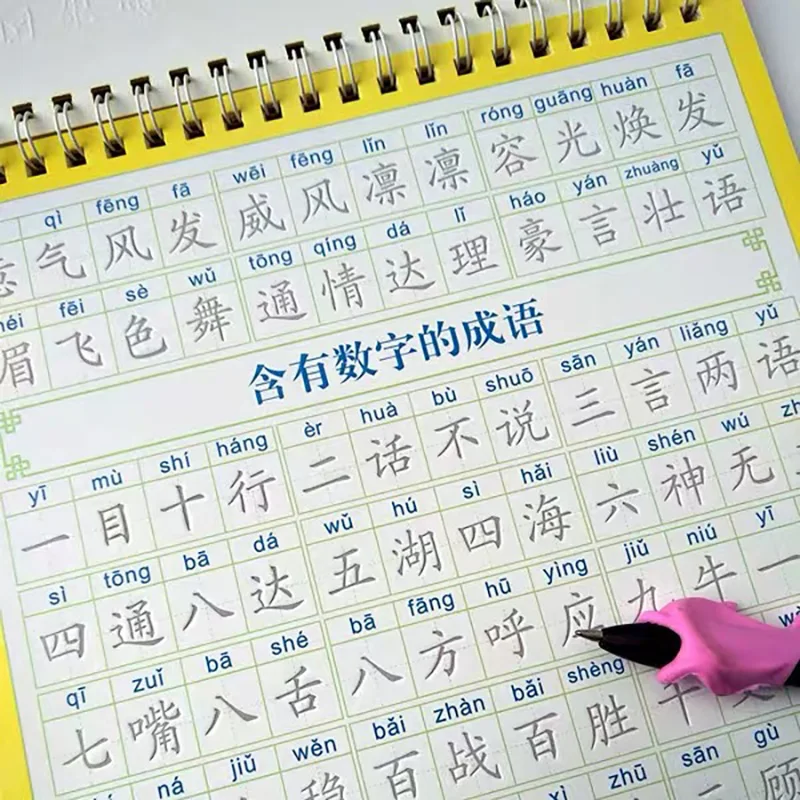 qì fēng fā wēi fēng lǐn lǐn róng guāng huàn fā
气风发 威风凛凛 容光焕发
fēi sè wǔ tōng qíng dá lǐ háo yán zhuàng yǔ
眉飞色舞 通情达理 豪言壮语
含有数字的成语
yī mù shí háng èr huà bù shuō sān yán liǎng yǔ
一目十行 二话不说 三言两语
sì tōng bā dá wǔ hú sì hǎi liù shén wú
四通八达 五湖四海 六神无
qī zuǐ bā shé bā fāng hū yìng jiǔ niú yī
七嘴八舌 八方呼应 九牛一
ná jiǔ wěn bǎi zhàn bǎi shèng
稳 百战百胜
xì zhū sān gù
顾